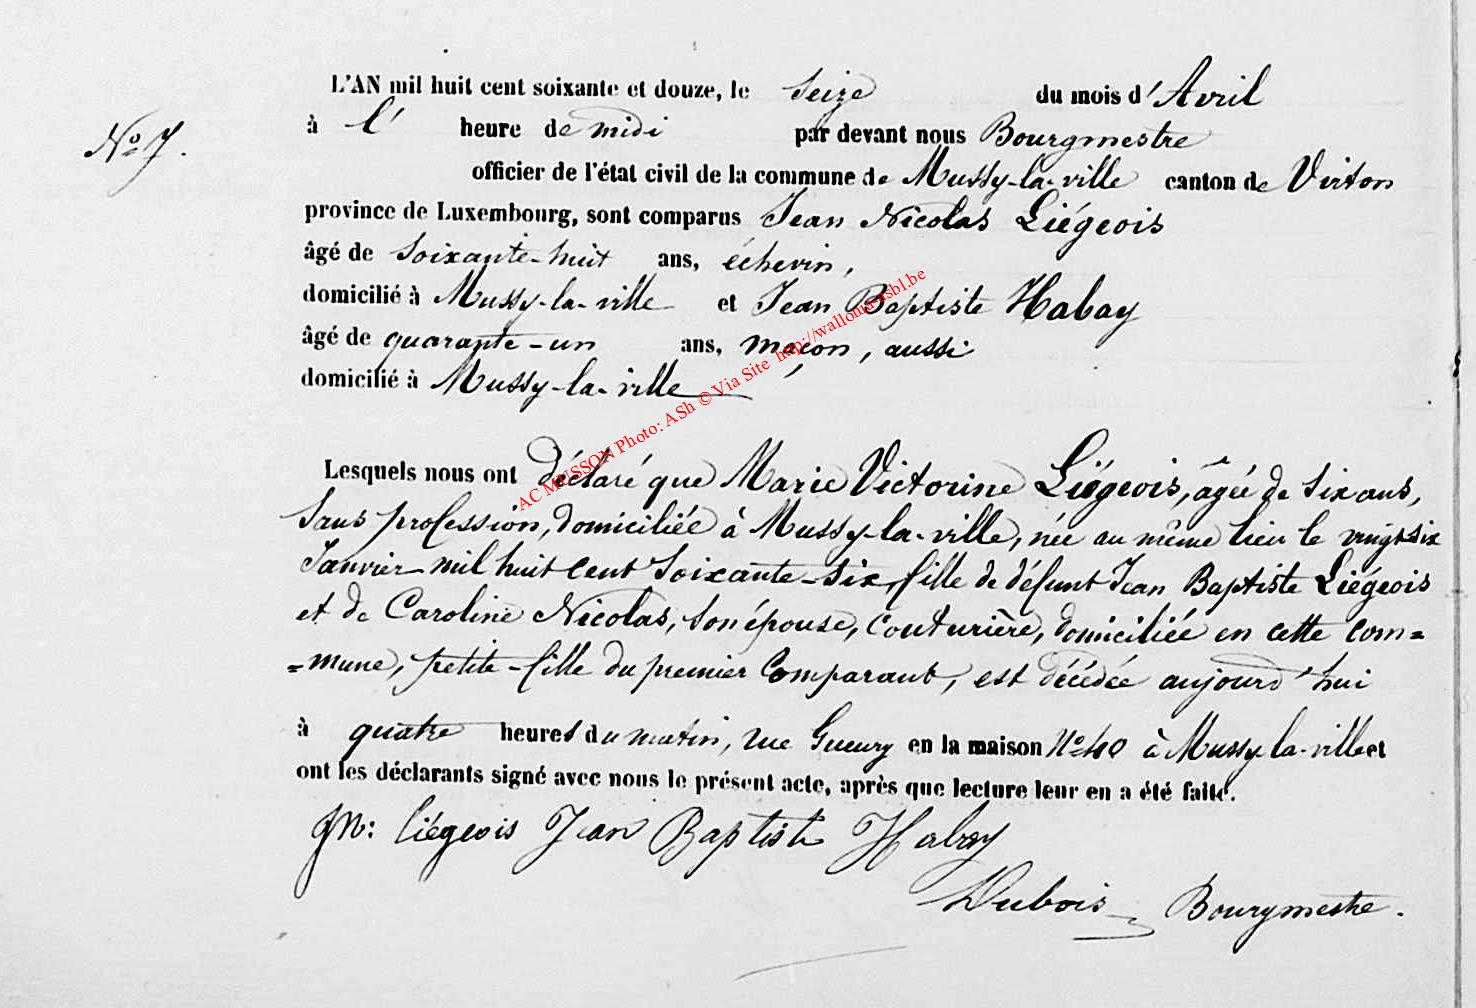 L'AN mil huit cent soixante et douze, le Seize du mois d'Avril
No 7.
à l' heure de midi par devant nous Bourgmestre
officier de l'état civil de la commune de Mussy-la-ville canton de Virton
province de Luxembourg, sont comparus Jean Nicolas Liégeois
âgé de Soixante-huit ans, échevin,
domicilié à Mussy-la-ville et Jean Baptiste Habay
âgé de quarante-un ans, maçon, aussi
domicilié à Mussy-la-ville
AC MUSSON Photo: ASh © Via Site http://wallonia-asbl.be
Lesquels nous ont déclaré que Marie Victorine Liégeois, âgée de six ans,
Sans profession, domiciliée à Mussy-la-ville, née au même lieu le vingt-six
Janvier mil huit cent Soixante-six, fille de défunt Jean Baptiste Liégeois
et de Caroline Nicolas, son épouse, couturière, domiciliée en cette com=
=mune, petite-fille du premier Comparant, est décédée aujourd'hui
à quatre heures du matin, rue Gueury en la maison No 40 à Mussy-la-ville et
ont les déclarants signé avec nous le présent acte, après que lecture leur en a été faite.
JN: Liégeois Jean Baptiste Habay
Dubois Bourgmestre.